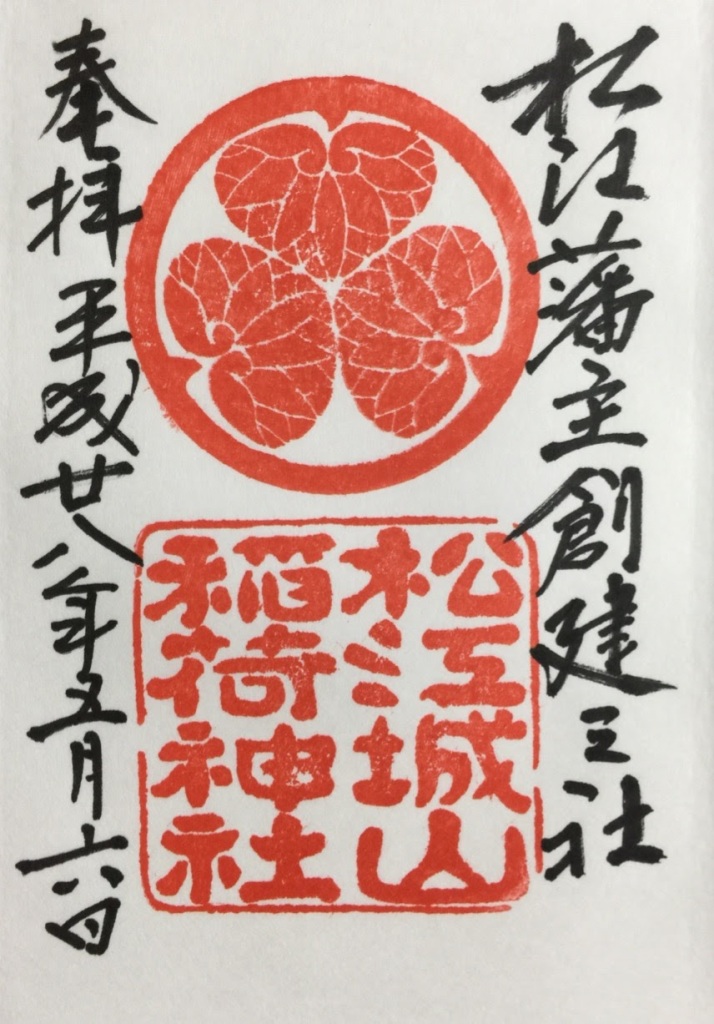 松江藩主創建三社
松江城山
稲荷神社
奉拝平成廿八年五月六日